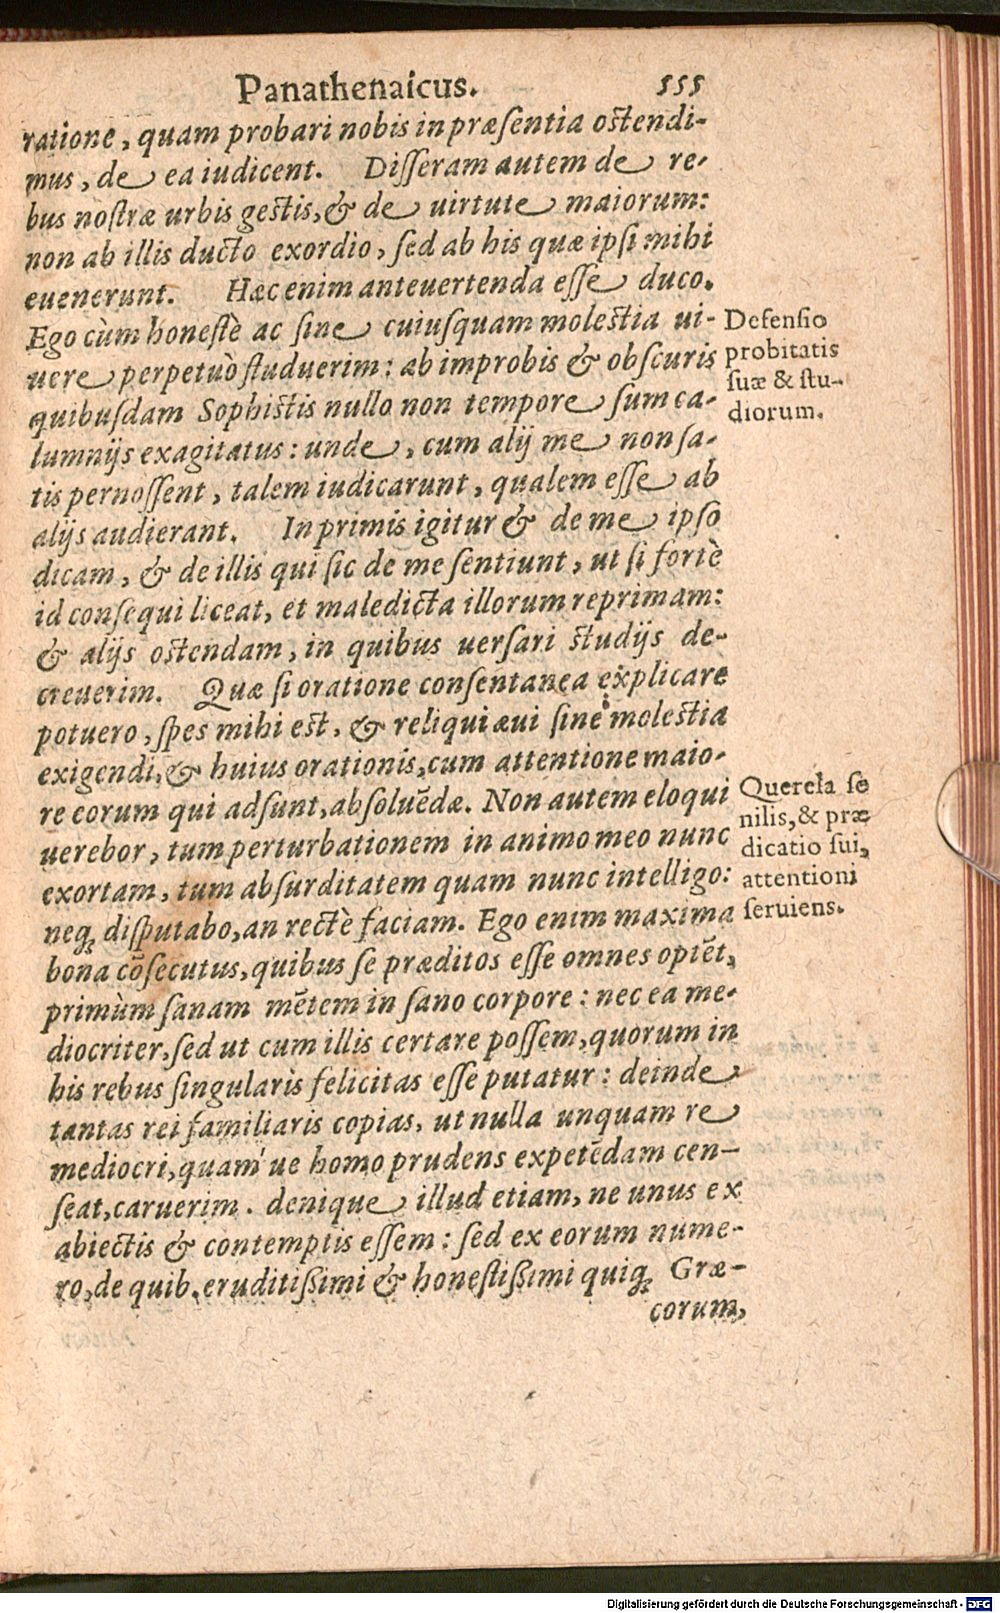 Panathenaicus. 555
ratione, quam probari nobis in præſentia oſtendi-
mus, de ea iudicent. Diſſeram autem de re-
bus noſtræ urbis geſtis, & de uirtute maiorum:
non ab illis ducto exordio, ſed ab his quæ ipſi mihi
euenerunt. Hæc enim anteuertenda eſſe duco.
Ego cùm honeſtè ac ſine cuiuſquam moleſtia ui-
uere perpetuò ſtuduerim: ab improbis & obſcuris
quibuſdam Sophiſtis nullo non tempore ſum ca-
lumnijs exagitatus: unde, cum alij me non ſa-
tis pernoſſent, talem iudicarunt, qualem eſſe ab
alijs audierant. In primis igitur & de me ipſo
dicam, & de illis qui ſic de me ſentiunt, ut ſi fortè
id conſequi liceat, et maledicta illorum reprimam:
& alijs oſtendam, in quibus uerſari ſtudijs de-
creuerim. Quæ ſi oratione conſentanea explicare
potuero, ſpes mihi eſt, & reliqui æui ſine moleſtia
exigendi, & huius orationis, cum attentione maio-
re eorum qui adſunt, abſoluēdæ. Non autem eloqui
uerebor, tum perturbationem in animo meo nunc
exortam, tum abſurditatem quam nunc intelligo:
neq; diſputabo, an rectè faciam. Ego enim maxima
bona cōſecutus, quibus ſe præditos eſſe omnes optēt,
primùm ſanam mētem in ſano corpore: nec ea me-
diocriter, ſed ut cum illis certare poſſem, quorum in
his rebus ſingularis felicitas eſſe putatur: deinde
tantas rei familiaris copias, ut nulla unquam re
mediocri, quam'ue homo prudens expetēdam cen-
ſeat, caruerim. denique illud etiam, ne unus ex
abiectis & contemptis eſſem: ſed ex eorum nume-
ro, de quib. eruditißimi & honeſtißimi quiq; Græ-
corum,
Defenſio
probitatis
ſuæ & ſtu-
diorum.
Querela ſe
nilis, & præ
dicatio ſui,
attentioni
ſeruiens.
Digitalisierung gefördert durch die Deutsche Forschungsgemeinschaft - DFG